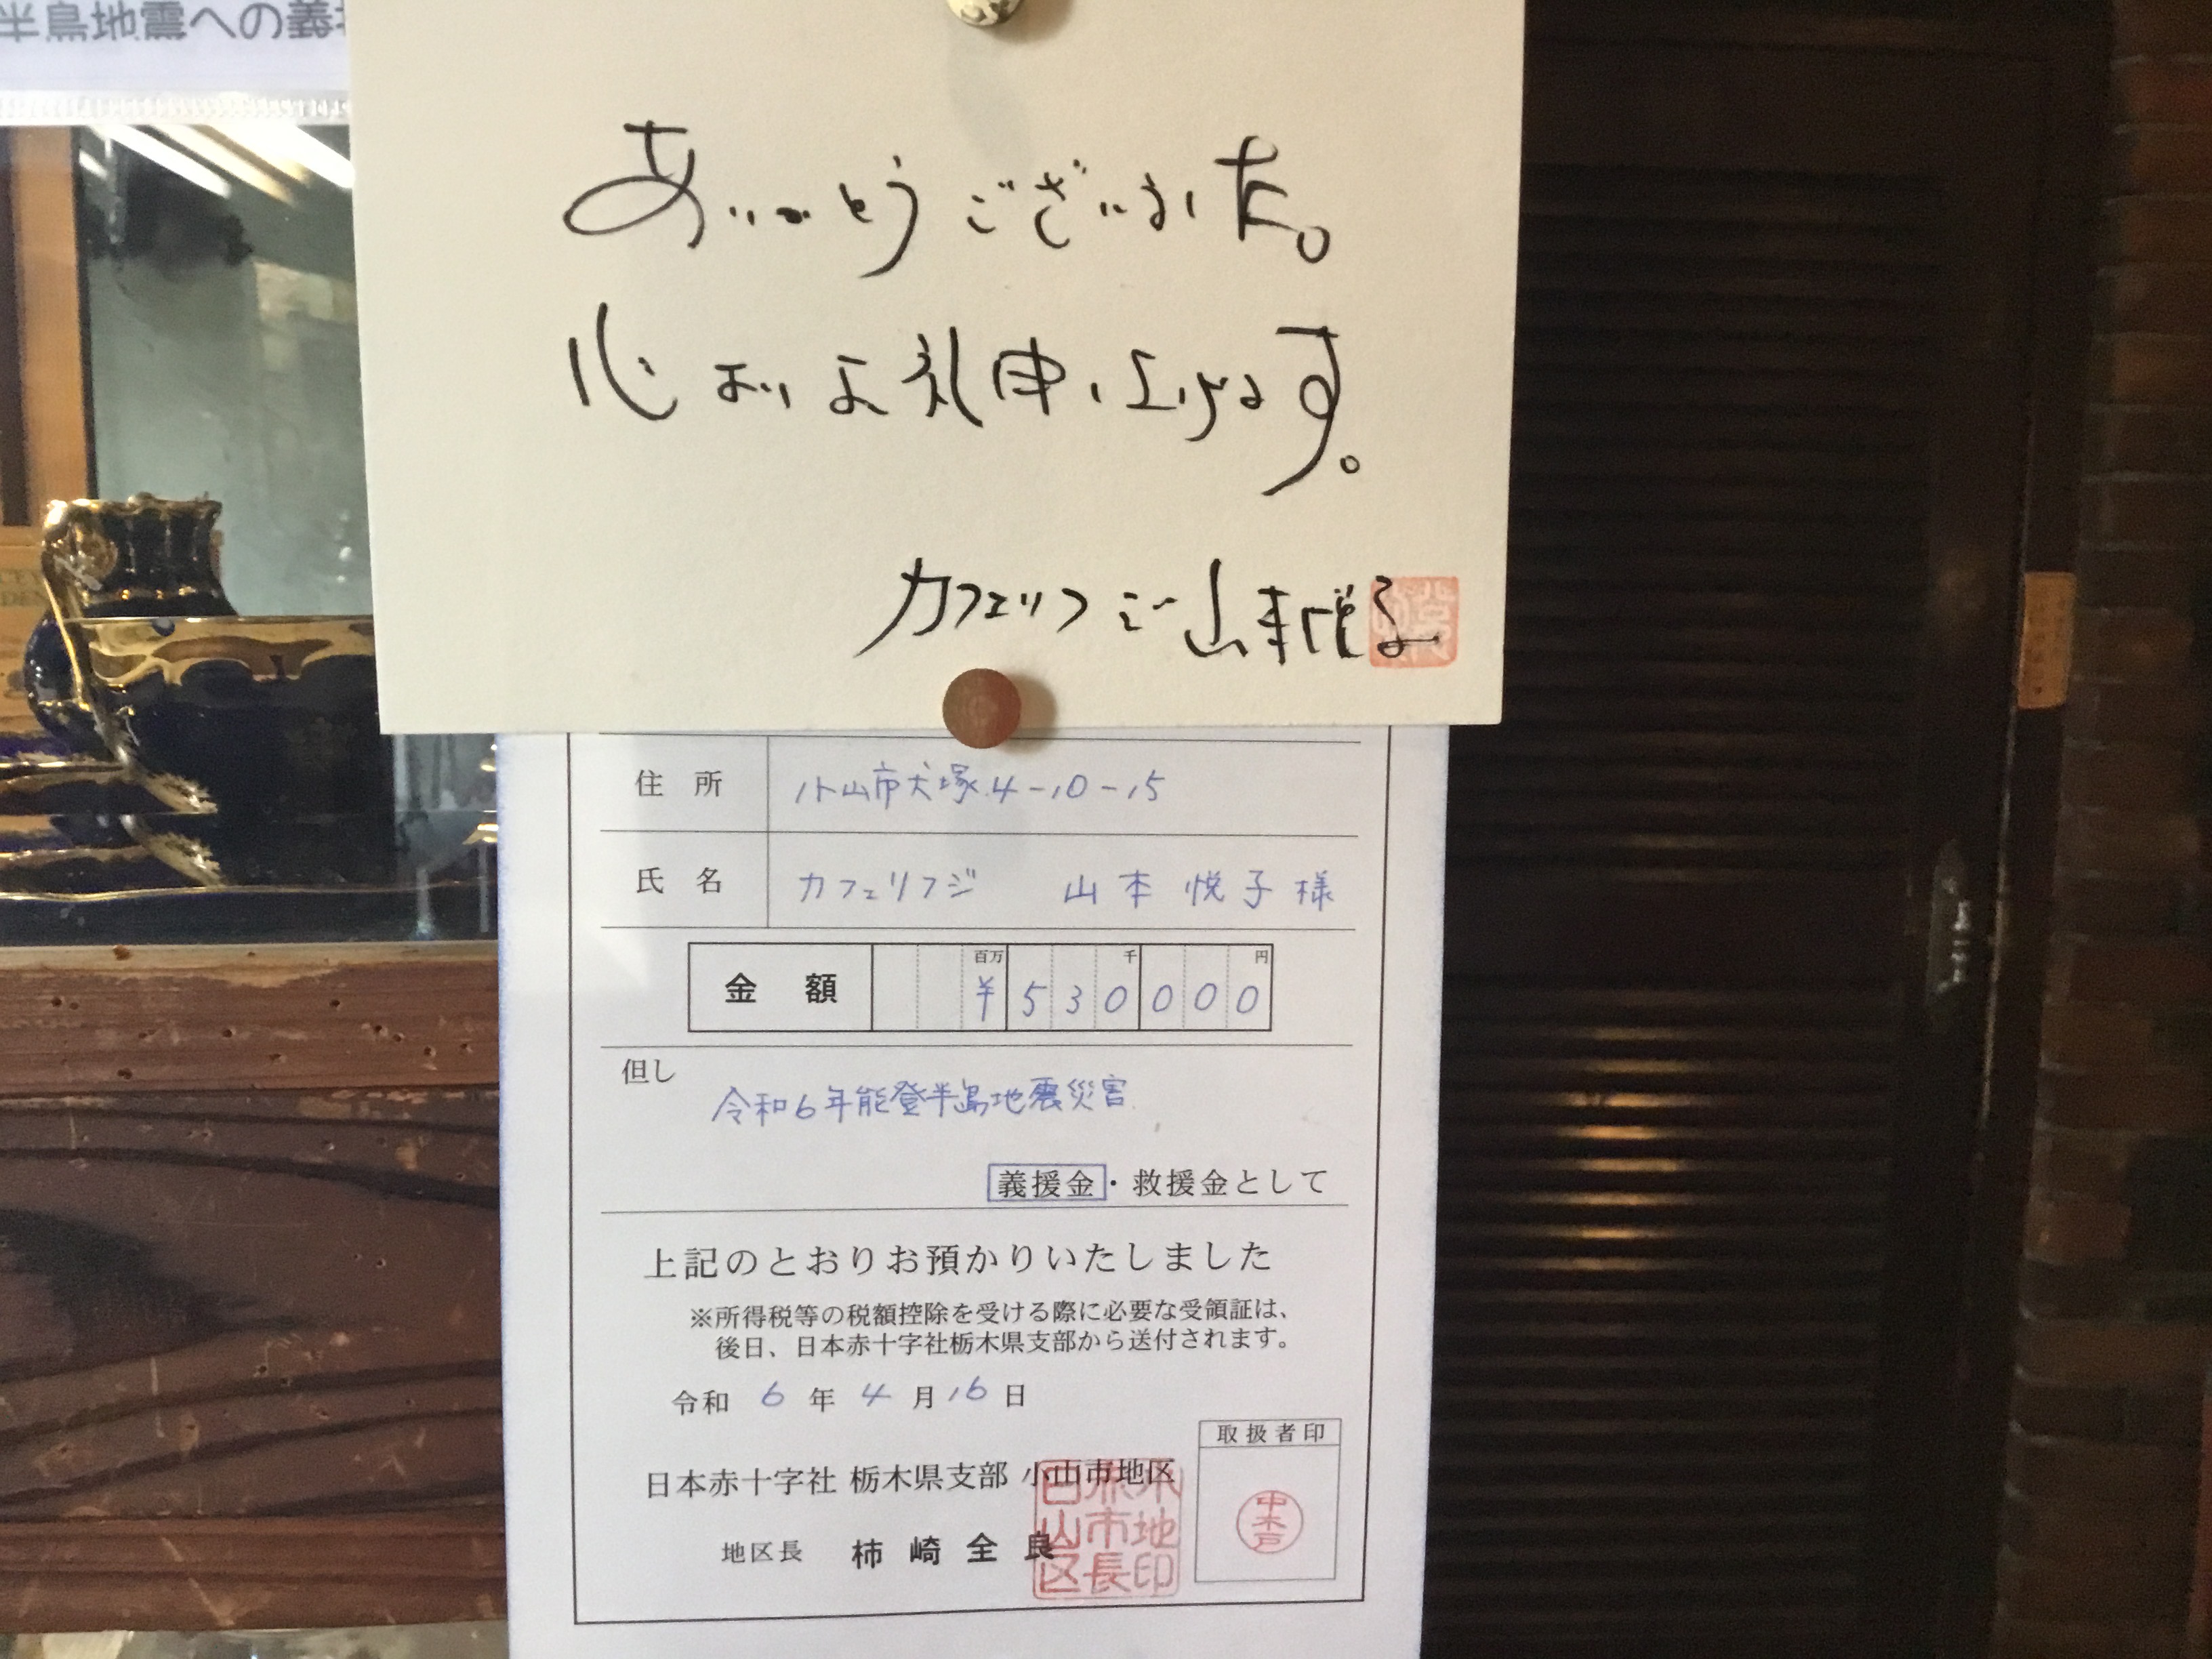 半島地震への義
ありがとうございました。
心よりお礼申し上げます。
カフェリフジ 山本悦子
住所 小山市犬塚4-10-15
氏名 カフェリフジ 山本悦子様
百万 千 円
金額 ¥530000
但し
令和6年能登半島地震災害
義援金・救援金として
上記のとおりお預かりいたしました
※所得税等の税額控除を受ける際に必要な受領証は、
後日、日本赤十字社栃木県支部から送付されます。
令和 6 年 4 月 16 日
取扱者印
日本赤十字社 栃木県支部 小山市地区
地区長 柿崎全良
中木戸